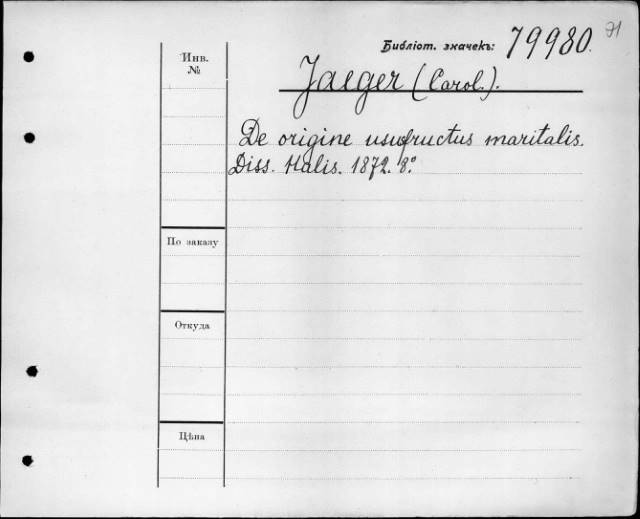 Библіот. значекъ: 79980.
Инв.
№
Jaeger (Carol.).
De origine ususfructus maritalis.
Diss. Halis. 1872. 8.°
По заказу
Откуда
Цѣна